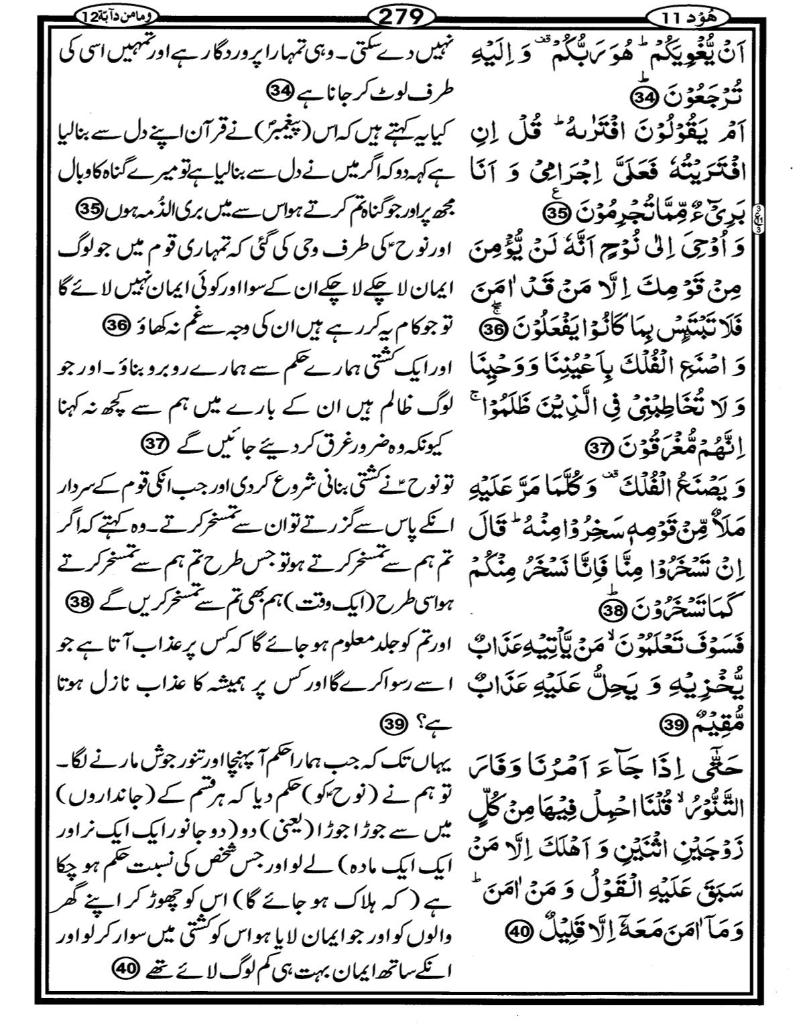 هُوْد 11
279
وما من دآبة 12
اَنْ يُّغْوِيَكُمْ ؕ هُوَ رَبُّكُمْ ۟ وَ اِلَيْهِ
تُرْجَعُوْنَ ؕ 34
اَمْ يَقُوْلُوْنَ افْتَرٰىهُ ؕ قُلْ اِنِ
افْتَرَيْتُهٗ فَعَلَيَّ اِجْرَامِيْ وَ اَنَا
بَرِيْٓءٌ مِّمَّا تُجْرِمُوْنَ ۧ 35
وَ اُوْحِيَ اِلٰى نُوْحٍ اَنَّهٗ لَنْ يُّؤْمِنَ
مِنْ قَوْمِكَ اِلَّا مَنْ قَدْ اٰمَنَ
فَلَا تَبْتَىِٕسْ بِمَا كَانُوْا يَفْعَلُوْنَ ۚ 36
وَ اصْنَعِ الْفُلْكَ بِاَعْيُنِنَا وَ وَحْيِنَا
وَ لَا تُخَاطِبْنِيْ فِي الَّذِيْنَ ظَلَمُوْا ۚ
اِنَّهُمْ مُّغْرَقُوْنَ 37
وَ يَصْنَعُ الْفُلْكَ ۟ وَ كُلَّمَا مَرَّ عَلَيْهِ
مَلَاٌ مِّنْ قَوْمِهٖ سَخِرُوْا مِنْهُ ؕ قَالَ
اِنْ تَسْخَرُوْا مِنَّا فَاِنَّا نَسْخَرُ مِنْكُمْ
كَمَا تَسْخَرُوْنَ ؕ 38
فَسَوْفَ تَعْلَمُوْنَ ۙ مَنْ يَّاْتِيْهِ عَذَابٌ
يُّخْزِيْهِ وَ يَحِلُّ عَلَيْهِ عَذَابٌ
مُّقِيْمٌ 39
حَتّٰۤى اِذَا جَآءَ اَمْرُنَا وَ فَارَ
التَّنُّوْرُ ۙ قُلْنَا احْمِلْ فِيْهَا مِنْ كُلٍّ
زَوْجَيْنِ اثْنَيْنِ وَ اَهْلَكَ اِلَّا مَنْ
سَبَقَ عَلَيْهِ الْقَوْلُ وَ مَنْ اٰمَنَ ؕ
وَ مَاۤ اٰمَنَ مَعَهٗۤ اِلَّا قَلِيْلٌ 40
نہیں دے سکتی۔ وہی تمہارا پروردگار ہے اور تمہیں اسی کی
طرف لوٹ کر جانا ہے 34
کیا یہ کہتے ہیں کہ اس (پیغمبرؐ) نے قرآن اپنے دل سے بنا لیا
ہے کہہ دو کہ اگر میں نے دل سے بنا لیا ہے تو میرے گناہ کا وبال
مجھ پر اور جو گناہ تم کرتے ہو اس سے میں بری الذمہ ہوں 35
اور نوح ؑ کی طرف وحی کی گئی کہ تمہاری قوم میں جو لوگ
ایمان لا چکے لا چکے ان کے سوا اور کوئی ایمان نہیں لائے گا
تو جو کام یہ کر رہے ہیں ان کی وجہ سے غم نہ کھاؤ 36
اور ایک کشتی ہمارے حکم سے ہمارے روبرو بناؤ۔ اور جو
لوگ ظالم ہیں ان کے بارے میں ہم سے کچھ نہ کہنا
کیونکہ وہ ضرور غرق کر دیئے جائیں گے 37
تو نوح ؑ نے کشتی بنانی شروع کر دی اور جب انکی قوم کے سردار
انکے پاس سے گزرتے تو ان سے تمسخر کرتے۔ وہ کہتے کہ اگر
تم ہم سے تمسخر کرتے ہو تو جس طرح تم ہم سے تمسخر کرتے
ہو اسی طرح (ایک وقت) ہم بھی تم سے تمسخر کریں گے 38
اور تم کو جلد معلوم ہو جائے گا کہ کس پر عذاب آتا ہے جو
اسے رسوا کرے گا اور کس پر ہمیشہ کا عذاب نازل ہوتا
ہے؟ 39
یہاں تک کہ جب ہمارا حکم آ پہنچا اور تنور جوش مارنے لگا۔
تو ہم نے (نوح ؑ کو) حکم دیا کہ ہر قسم کے (جانداروں)
میں سے جوڑا جوڑا (یعنی) دو (دو جانور ایک ایک نر اور
ایک ایک مادہ) لے لو اور جس شخص کی نسبت حکم ہو چکا
ہے (کہ ہلاک ہو جائے گا) اس کو چھوڑ کر اپنے گھر
والوں کو اور جو ایمان لایا ہو اس کو کشتی میں سوار کر لو اور
انکے ساتھ ایمان بہت ہی کم لوگ لائے تھے 40